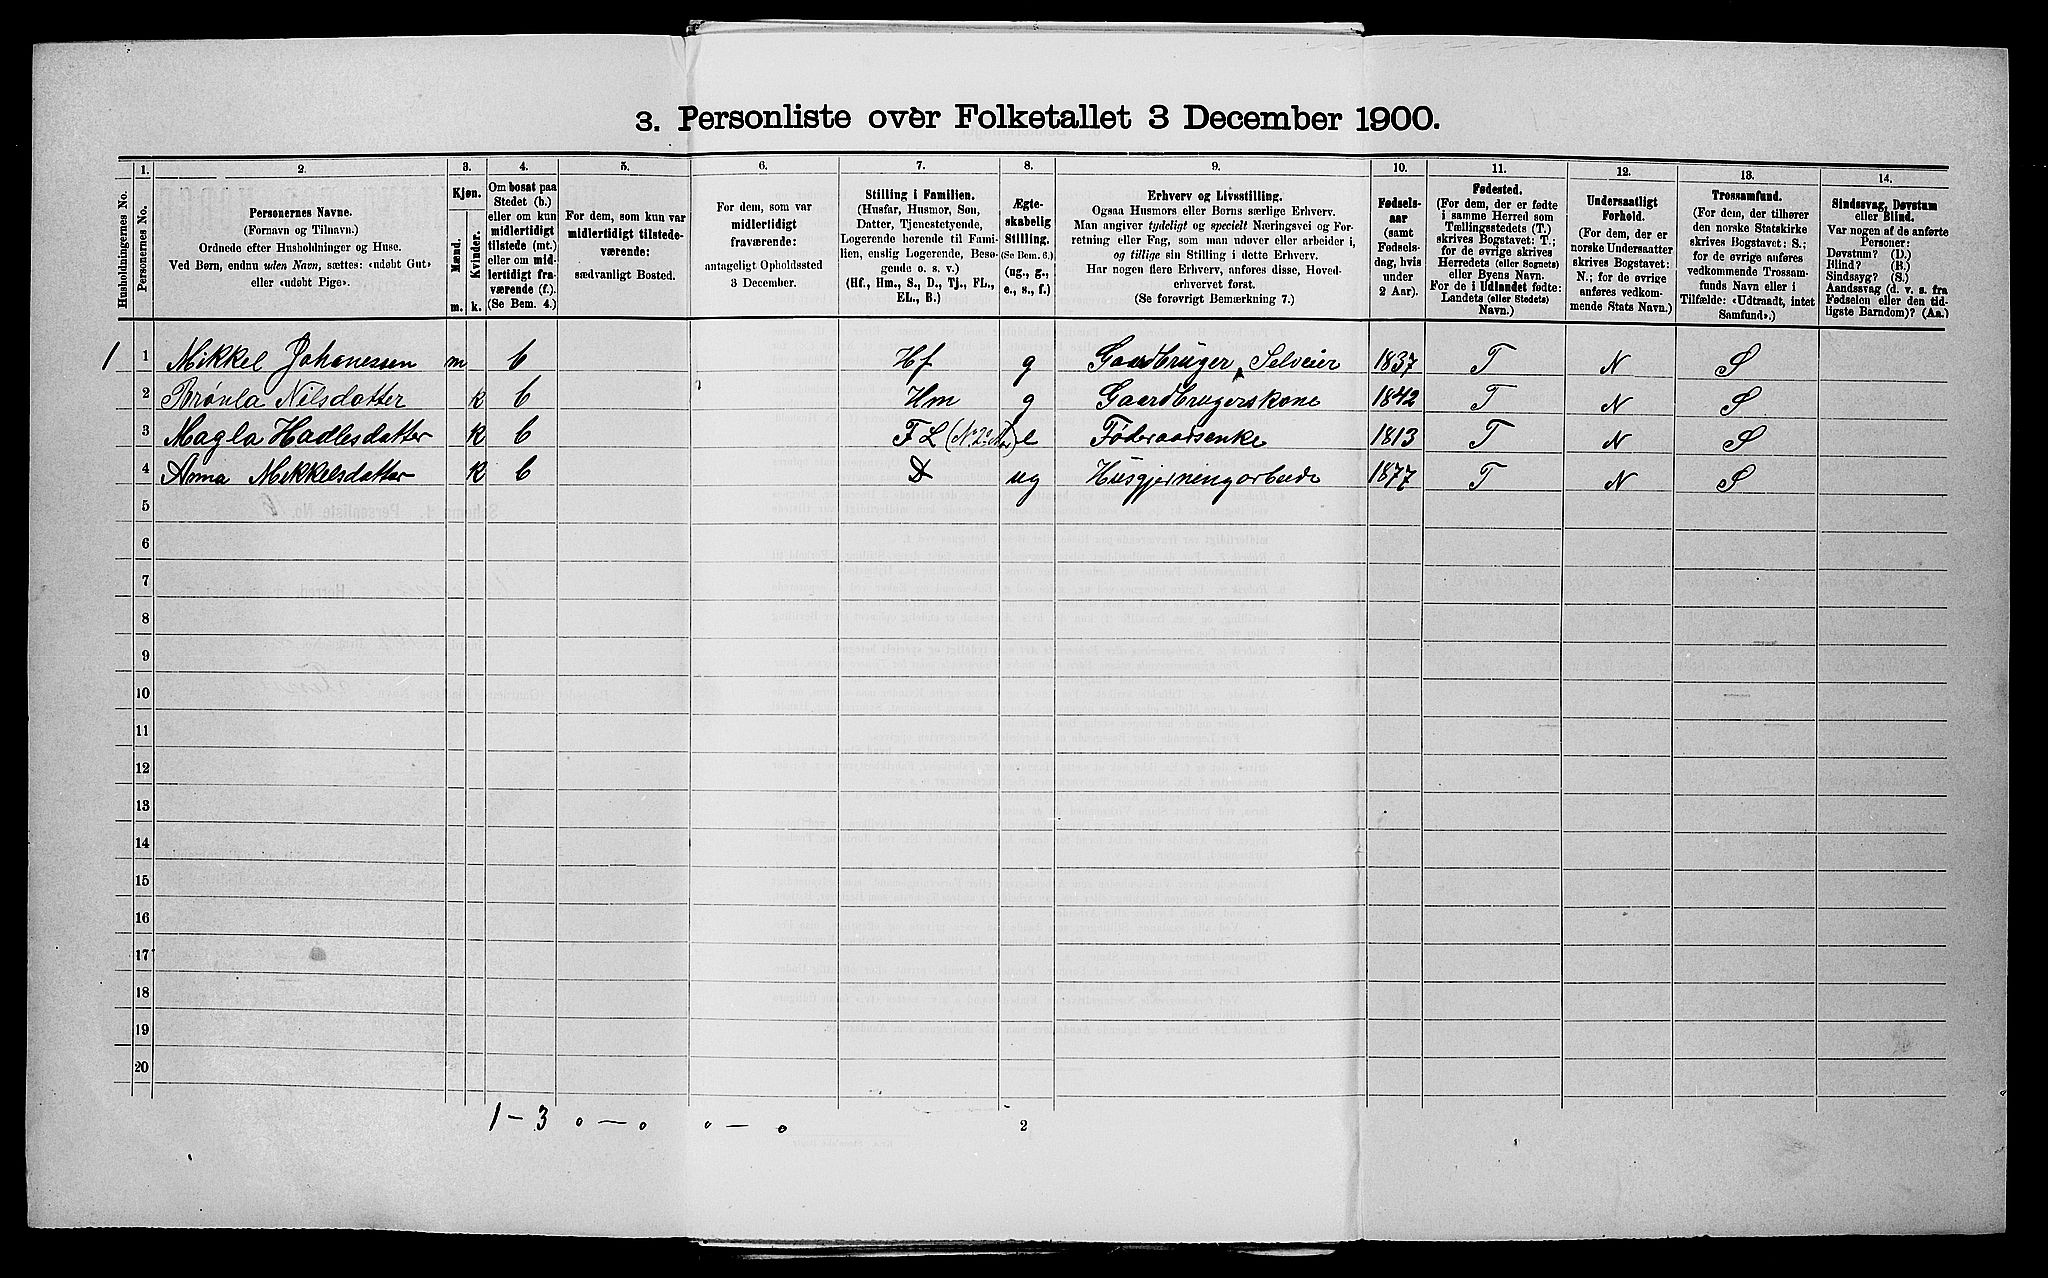 3. Personliste over Folketallet 3 December 1900.
1. 2. 3. 4. 5. 6. 7. 8. 9. 10. 11. 12. 13. 14.
Husholdningernes No.
Personernes No.
Personernes Navne.
(Fornavn og Tilnavn.)
Ordnede efter Husholdninger og Huse.
Ved Børn, endnu uden Navn, sættes: «udøbt Gut»
eller «udøbt Pige».
Kjøn.
Mænd.
Kvinder.
m. k.
Om bosat paa
Stedet (b.)
eller om kun
midlertidigt
tilstede (mt.)
eller om mid-
lertidigt fra-
værende (f.)
(Se Bem. 4.)
For dem, som kun var
midlertidigt tilstede-
værende:
sædvanligt Bosted.
For dem, som var
midlertidigt
fraværende:
antageligt Opholdssted
3 December.
Stilling i Familien.
(Husfar, Husmor, Søn,
Datter, Tjenestetyende,
Logerende hørende til Fami-
lien, enslig Logerende, Besø-
gende o. s. v.)
(Hf., Hm., S., D., Tj., FL.,
EL., B.)
Ægte-
skabelig
Stilling.
(Se Bem. 6.)
(ug., g.,
e., s., f.)
Erhverv og Livsstilling.
Ogsaa Husmors eller Børns særlige Erhverv.
Man angiver tydeligt og specielt Næringsvei og For-
retning eller Fag, som man udøver eller arbeider i,
og tillige sin Stilling i dette Erhverv.
Har nogen flere Erhverv, anføres disse, Hoved-
erhvervet først.
(Se forøvrigt Bemærkning 7.)
Fødsels-
aar
(samt
Fødsels-
dag, hvis
under
2 Aar).
Fødested.
(For dem, der er fødte
i samme Herred som
Tællingsstedets (T.)
skrives Bogstavet: T.;
for de øvrige skrives
Herredets (eller Sognets)
eller Byens Navn.
For de i Udlandet fødte:
Landets (eller Stedets)
Navn.)
Undersaatligt
Forhold.
(For dem, der er
norske Undersaatter
skrives Bogstavet:
N.; for de øvrige
anføres vedkom-
mende Stats Navn.)
Trossamfund.
(For dem, der tilhører
den norske Statskirke
skrives Bogstavet: S.;
for de øvrige anføres
vedkommende Trossam-
funds Navn eller i
Tilfælde: «Udtraadt, intet
Samfund».)
Sindssvag, Døvstum
eller Blind.
Var nogen af de anførte
Personer:
Døvstum? (D.)
Blind? (B.)
Sindssyg? (S.)
Aandssvag (d. v. s. fra
Fødselen eller den tid-
ligste Barndom)? (Aa.)
1 1 Mikkel Johanessen m b Hf g Gaardbruger, Selveier 1837 T N S
2 Brønla Nilsdatter k b Hm g Gaardbrugerskone 1842 T N S
3 Magla Hadlesdatter k b FL (No 2s Mor) e Føderaadsenke 1813 T N S
4 Anna Mikkelsdatter k b D ug Husgjerningarbeide 1877 T N S
5
6
7
8
9
10
11
12
13
14
15
16
17
18
19
20
1 – 3 0 – 0 0 – 0 2